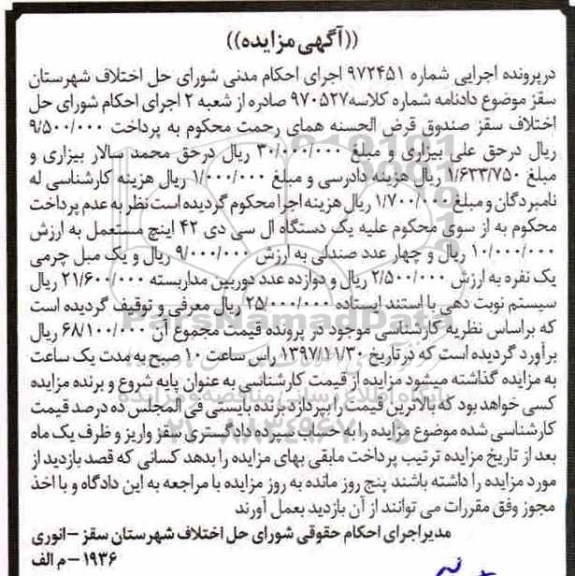 ((آگهی مزایده))
درپرونده اجرایی شماره ۹۷۲۴۵۱ اجرای احکام مدنی شورای حل اختلاف شهرستان
سقز موضوع دادنامه شماره کلاسه۹۷۰۵۲۷ صادره از شعبه ۲ اجرای احکام شورای حل
اختلاف سقز صندوق قرض الحسنه همای رحمت محکوم به پرداخت ۹/۵۰۰/۰۰۰
ریال درحق علی بیزاری و مبلغ ۳۰/۰۰۰/۰۰۰ ریال درحق محمد سالار بیزاری و
مبلغ ۱/۶۳۳/۷۵۰ ریال هزینه دادرسی و مبلغ ۱/۰۰۰/۰۰۰ ریال هزینه کارشناسی له
نامبردگان و مبلغ ۱/۷۰۰/۰۰۰ ریال هزینه اجرا محکوم گردیده است نظر به عدم پرداخت
محکوم به از سوی محکوم علیه یک دستگاه ال سی دی ۴۲ اینچ مستعمل به ارزش
۱۰/۰۰۰/۰۰۰ ریال و چهار عدد صندلی به ارزش ۹/۰۰۰/۰۰۰ ریال و یک مبل چرمی
یک نفره به ارزش ۲/۵۰۰/۰۰۰ ریال و دوازده عدد دوربین مداربسته ۲۱/۶۰۰/۰۰۰ ریال
سیستم نوبت دهی با استند ایستاده ۲۵/۰۰۰/۰۰۰ ریال معرفی و توقیف گردیده است
که براساس نظریه کارشناسی موجود در پرونده قیمت مجموع آن ۶۸/۱۰۰/۰۰۰ ریال
برآورد گردیده است که در تاریخ ۱۳۹۷/۱۱/۳۰ راس ساعت ۱۰ صبح به مدت یک ساعت
به مزایده گذاشته میشود مزایده از قیمت کارشناسی به عنوان پایه شروع و برنده مزایده
کسی خواهد بود که بالاترین قیمت را بپردازد برنده بایستی فی المجلس ده درصد قیمت
کارشناسی شده موضوع مزایده را به حساب سپرده دادگستری سقز واریز و ظرف یک ماه
بعد از تاریخ مزایده ترتیب پرداخت مابقی بهای مزایده را بدهد کسانی که قصد بازدید از
مورد مزایده را داشته باشند پنج روز مانده به روز مزایده با مراجعه به این دادگاه و با اخذ
مجوز وفق مقررات می توانند از آن بازدید بعمل آورند
مدیراجرای احکام حقوقی شورای حل اختلاف شهرستان سقز – انوری
۱۹۳۶ – م الف